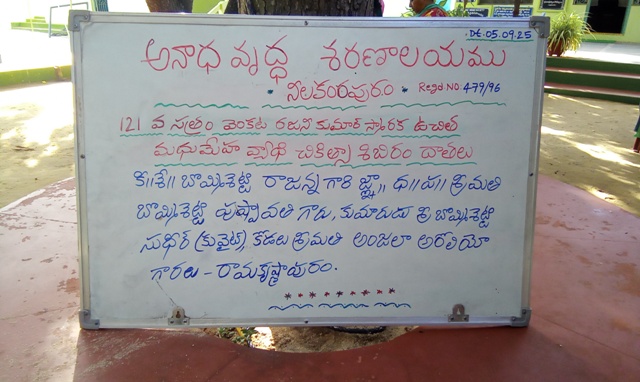 Dt.05.09.25
అనాధ వృద్ధ శరణాలయము
నీలకంఠాపురం Regd NO 479/96
121 వ సత్రం వెంకట రజనీ కుమార్ స్మారక ఉచిత
మధుమేహ వ్యాధి చికిత్సా శిబిరం దాతలు
కీ॥శే॥ బొమ్మిశెట్టి రాజన్న గారి జ్ఞా,, ధ॥ప॥ శ్రీమతి
బొమ్మిశెట్టి పుష్పావతి గారు, కుమారుడు శ్రీ బొమ్మిశెట్టి
సుధీర్ (కువైట్), కోడలు శ్రీమతి అంజలా అరోలియో
గారలు - రామకృష్ణాపురం.